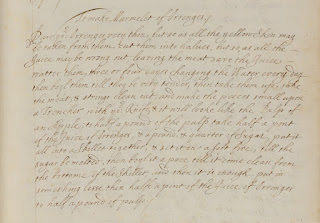 To make Marmelet of Orrenges
Pare yor Orrenges very thin, but so as all the yellow skin may
be taken from them. Cut them into halves, but so as all the
Juice may be wrung out, leaving the meat save the Juice
water them three or four dayes changing the Water every day
then boyl them till they be very tender, then take them up,
the meat, & strings clean out, and mince the pieces small upon
a Trencher with a Knife, & it will look like the Pulp of
an Apple, to half a pound of the pulp take half a pint
of the Juice of Orrenges, & a pound & quarter of Sugar, put it
all into a Skillet together, & set it on a soft fire, till the
sugar be melted, then boyl it a pace, till it come clean from
the bottome of the Skillet, and then it is enough, put in
something less then half a pint of the Juice of Orrenges
to half a pound of pulp